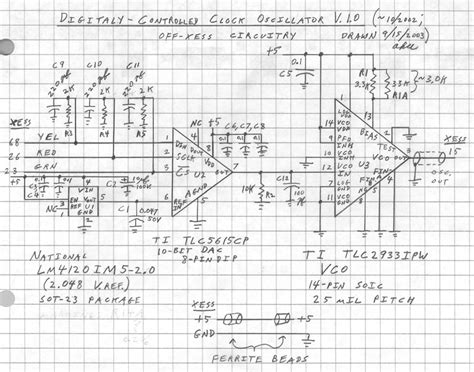 DIGITALY-CONTROLLED CLOCK OSCILLATOR V.1.0 (~10/2002;
OFF-XESS CIRCUITRY DRAWN 9/15/2003)
C9 C10 C11
220pf 220pf 220pf
2K 2K 2K
R3 R4 R5
+5
0.1
C5
R1
3.3K
33K
R1A
~3.0K
XESS
68 YEL
26 RED
23 GRN
+5
NC
C6,C7,C8
NC
DIN
SCLK
CS
REF
IN
AGND
U2
VDD
C2
10µf
100K
C1
0.047
50V
C3
C4
VIN
EN
REF
GND
U1
10K
R2
C12
VCO
VDD
BIAS
TEST
VCO OUT
PFD
INH
VCO
INH
VCO
IN
U3
GND
XESS
15
OSC.
OUT
TI TLC5615CP
10-BIT DAC
8-PIN DIP
TI TLC2933IPW
VCO
14-PIN SOIC
25 MIL PITCH
NATIONAL
LM4120IM5-2.0
(2.048 VREF.)
SOT-23 PACKAGE
XESS
+5 +5
GND
FERRITE BEADS